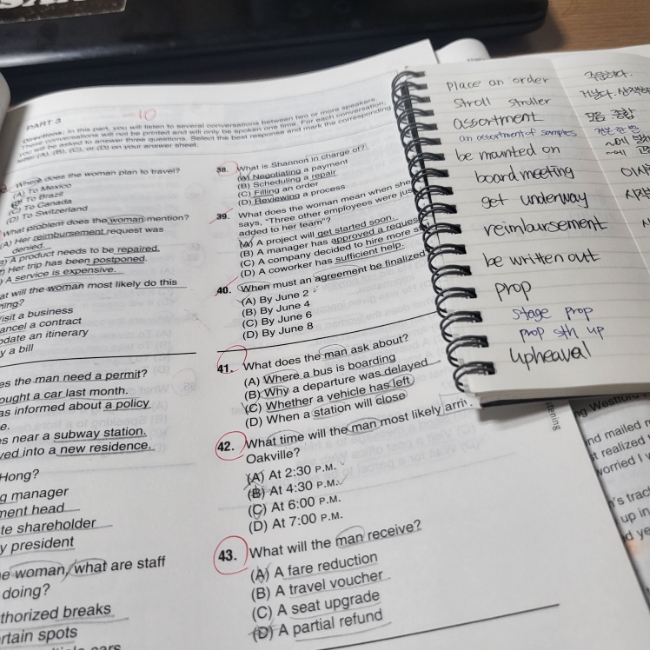 10
PART 3
Directions: In this part, you will listen to several conversations between two or more speakers.
These conversations will not be printed and will only be spoken one time. For each conversation,
you will be asked to answer three questions. Select the best response and mark the corresponding
(A), (B), (C), or (D) on your answer sheet.
Where does the woman plan to travel?
(A) To Mexico
To Brazil
(C) To Canada
(D) To Switzerland
What problem does the woman mention?
(A) Her reimbursement request was
denied.
A product needs to be repaired.
Her trip has been postponed.
A service is expensive.
will the woman most likely do this
a business
a contract
an itinerary
a bill
the man need a permit?
a car last month.
informed about a policy
near a subway station.
into a new residence.
Hong?
manager
head
shareholder
president
woman, what are staff
doing?
breaks
spots
38. What is Shannon in charge of?
(A) Negotiating a payment
(B) Scheduling a repair
(C) Filling an order
(D) Reviewing a process
39. What does the woman mean when she
says, "Three other employees were just
added to her team"?
(A) A project will get started soon.
(B) A manager has approved a request
(C) A company decided to hire more
(D) A coworker has sufficient help.
40. When must an agreement be finalized
(A) By June 2
(B) By June 4
(C) By June 6
(D) By June 8
41. What does the man ask about?
(A) Where a bus is boarding
(B) Why a departure was delayed
(C) Whether a vehicle has left
(D) When a station will close
42. What time will the man most likely
Oakville?
(A) At 2:30 P.M.
(B) At 4:30 P.M.
(C) At 6:00 P.M.
(D) At 7:00 P.M.
43. What will the man receive?
(A) A fare reduction
(B) A travel voucher
(C) A seat upgrade
(D) A partial refund
place an order
stroll stroller
assortment
an assortment of samples
be mounted on
board meeting
get underway
reimbursement
be written out
prop
stage prop
prop sth up
upheaval
mailed
realized
worried I
up in